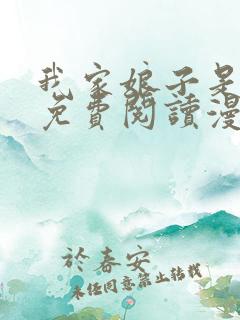 我家娘子是
免費閱讀漫
於春安
未經同意禁止轉載